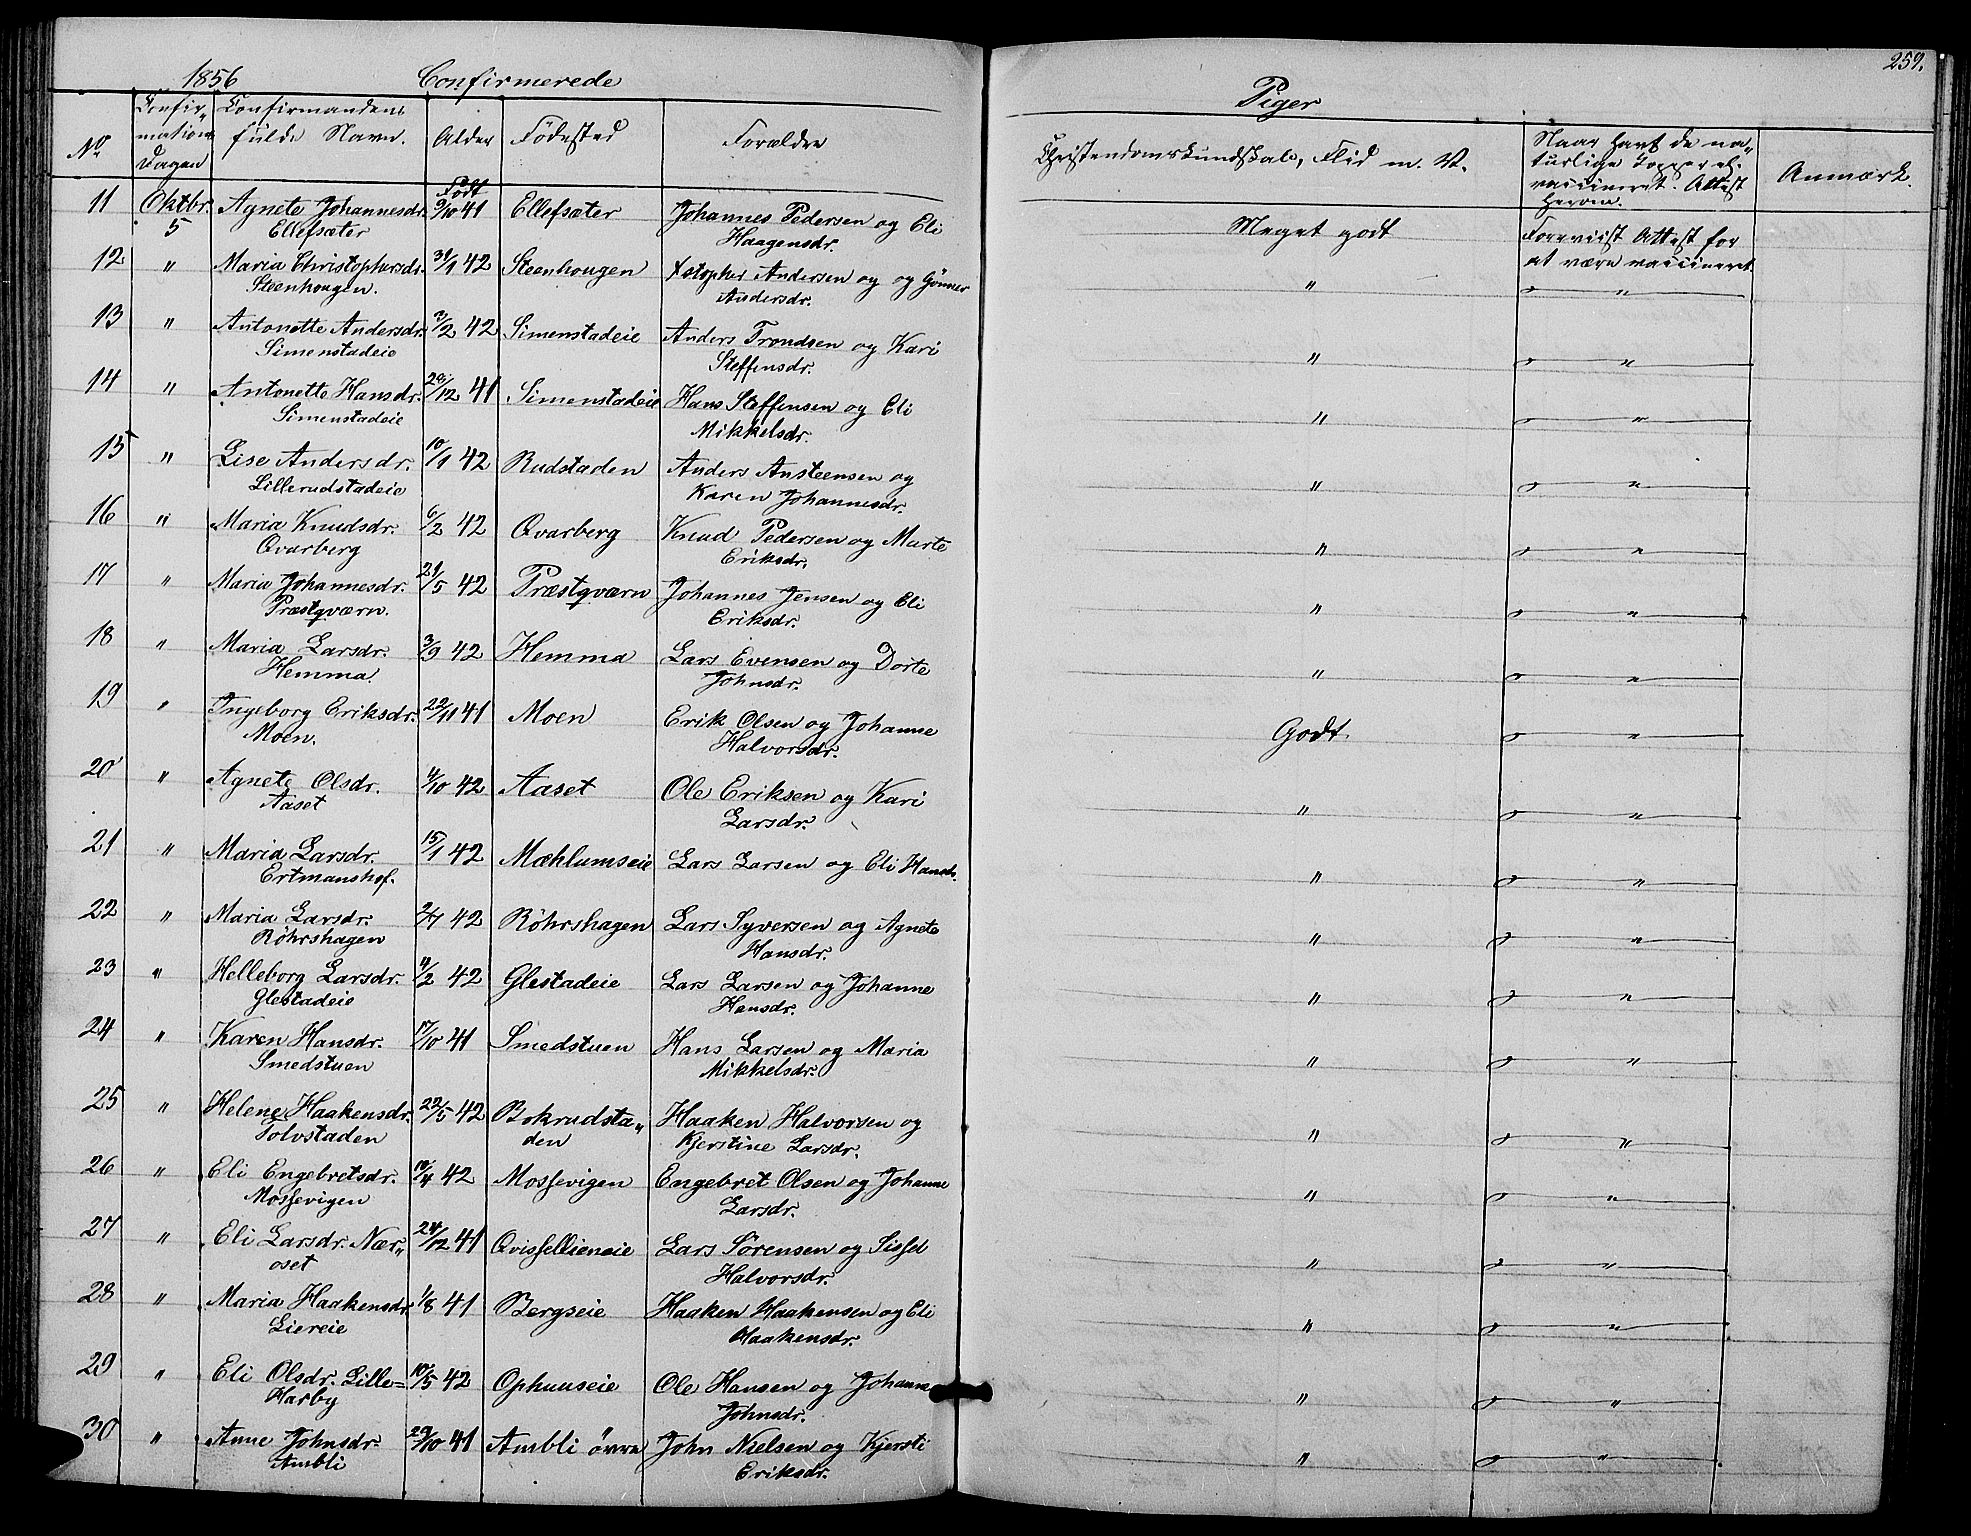 1856 Confirmerede
Piger
259.
No
Confir-
mations
Dagen
Confirmandens
fulde Navn.
Alder
Fødested
Forældre
Christendomskundskab, Flid m. V.
Naar havt de na-
turlige Kopper el.
vaccineret. Attest
herom.
Anmærk.
11 Oktbr. Agnete Johannesdr. Født 9/10 41 Ellefsæter Johannes Pedersen og Eli Meget godt Foreviist Attest for
5 Ellefsæter Haagensdr. at være vaccineret.
12 " Maria Christophersdr. 31/1 42 Steenhougen Xstopher Andersen og og Gønner " "
Steenhougen. Andersdr.
13 " Antonette Andersdr. 3/2 42 Simenstadeie Anders Trondsen og Kari " "
Simenstadeie Steffensdr.
14 " Antonette Hansdr. 29/12 41 Simenstadeie Hans Steffensen og Eli " "
Simenstadeie Mikkelsdr.
15 " Lise Andersdr. 10/1 42 Rudstaden Anders Ansteensen og " "
Lillerudstadeie Karen Johannesdr.
16 " Maria Knudsdr. 6/2 42 Qvarberg Knud Pedersen og Marte " "
Qvarberg Eriksdr.
17 " Maria Johannesdr. 21/5 42 Præstqværn Johannes Jensen og Eli " "
Præstqværn. Eriksdr.
18 " Maria Larsdr. 3/9 42 Hemma Lars Evensen og Dorte " "
Hemma. Johnsdr.
19 " Ingeborg Eriksdr. 22/11 41 Moen Erik Olsen og Johanne Godt. "
Moen. Halvorsdr.
20 " Agnete Olsdr. 4/10 42 Aaset Ole Eriksen og Kari " "
Aaset Larsdr.
21 " Maria Larsdr. 15/1 42 Mæhlumseie Lars Larsen og Eli Hansdr. " "
Ertmanshof.
22 " Maria Larsdr. 42 Röhrshagen Lars Syversen og Agnete " "
Röhrshagen Hansdr.
23 " Helleborg Larsdr. 4/2 42 Glestadeie Lars Larsen og Johanne " "
Glestadeie Hansdr.
24 " Karen Hansdr. 17/10 41 Smedstuen Hans Larsen og Maria " "
Smedstuen Mikkelsdr.
25 " Helene Haakensdr. 22/5 42 Bokrudsta- Haaken Halvorsen og " "
Tolvstaden den Kjerstine Larsdr.
26 " Eli Engebretsdr. 10/4 42 Mossevigen Engebret Olsen og Johanne " "
Mossevigen Larsdr.
27 " Eli Larsdr. Nær- 24/12 41 Qvissellieneie Lars Sørensen og Sissel " "
oset Halvorsdr.
28 " Maria Haakensdr. 1/8 41 Bergseie Haaken Haakensen og Eli " "
Liereie Haakensdr.
29 " Eli Olsdr. Lille= 10/5 42 Ophuuseie Ole Hansen og Johanne " "
Harby Johnsdr.
30 " Anne Johnsdr. 29/10 41 Ambli övre John Nielsen og Kjersti " "
Ambli Eriksdr.